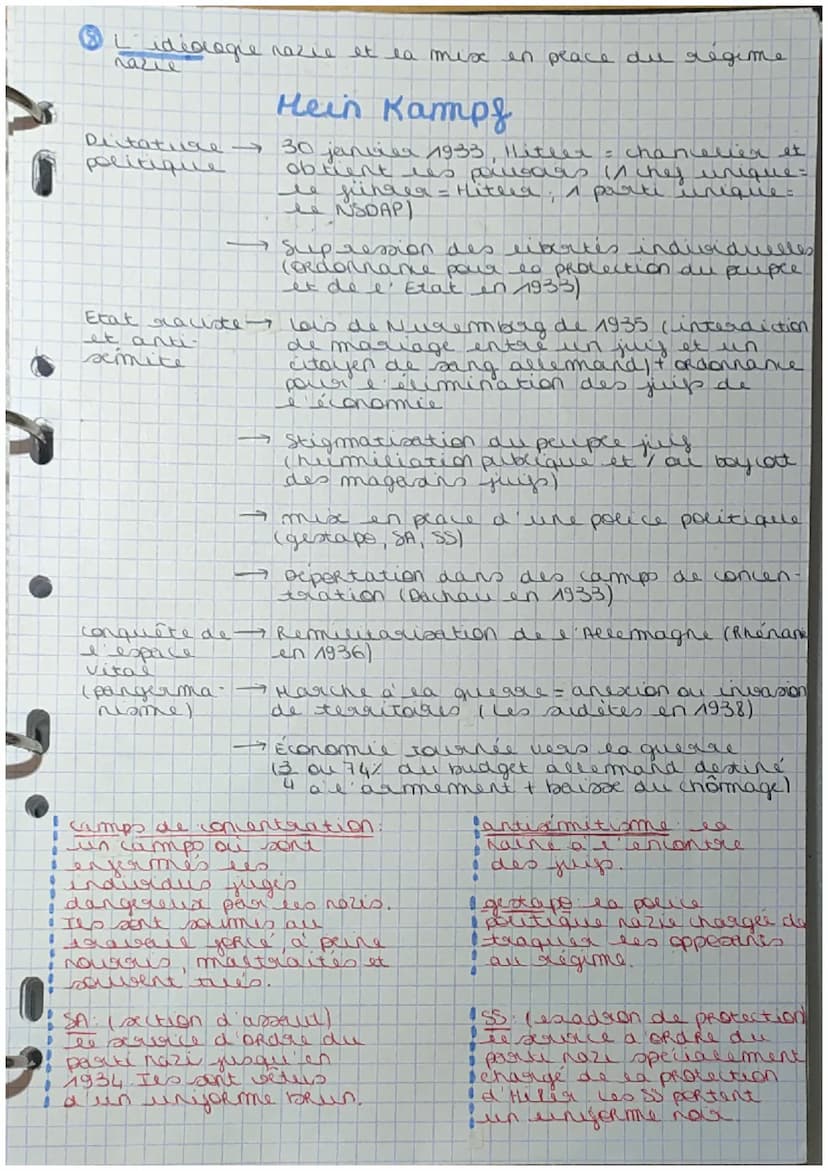 ⑧ L'idéologie nazie et la mise en place du régime
nazie
Mein Kampf
Dictature → 30 janvier 1933, Hitler = chancelier et
politique obtient les pouvoirs (1 chef unique =
le führer = Hitler, 1 parti unique =
le NSDAP)
→ Supression des libertés individuelles
(ordonnance pour la protection du peuple
et de l'Etat en 1933)
Etat raciste → lois de Nuremberg de 1935 (interdiction
et anti- de mariage entre un juif et un
sémite citoyen de sang allemand) + ordonnance
pour l'élimination des juifs de
l'économie
→ Stigmatisation du peuple juif
(humiliation publique et / ou boycot
des magasins juifs)
→ mise en place d'une police politique
(gestapo, SA, SS)
→ Déportation dans des camps de concen-
tration (Dachau en 1933)
conquête de → Remilitarisation de l'Allemagne (Rhénan
l'espace en 1936)
vital
(pangerma- → Marche à la guerre = anexion ou invasion
nisme) de territoires (les sudètes en 1938)
→ Économie tournée vers la guerre
(3/4 ou 74% du budget allemand destiné
à l'armement + baisse du chômage)
camps de concentration:
un camps où sont
enfermés les
individus jugés
dangereux par les nazis.
Ils sont soumis au
travail forcé, à peine
nourris, maltraités et
souvent tués.
SA: (section d'assaut)
le service d'ordre du
parti nazi jusqu'en
1934 Ils sont vêtus
d'un uniforme brun.
antisémitisme: la
haine à l'encontre
des juifs.
gestapo: la police
politique nazie chargée de
traquer les opposants
au régime.
SS: (escadron de protection)
le service d'ordre du
parti nazi spécialement
chargé de la protection
d'Hitler Les SS portent
un uniforme noir.